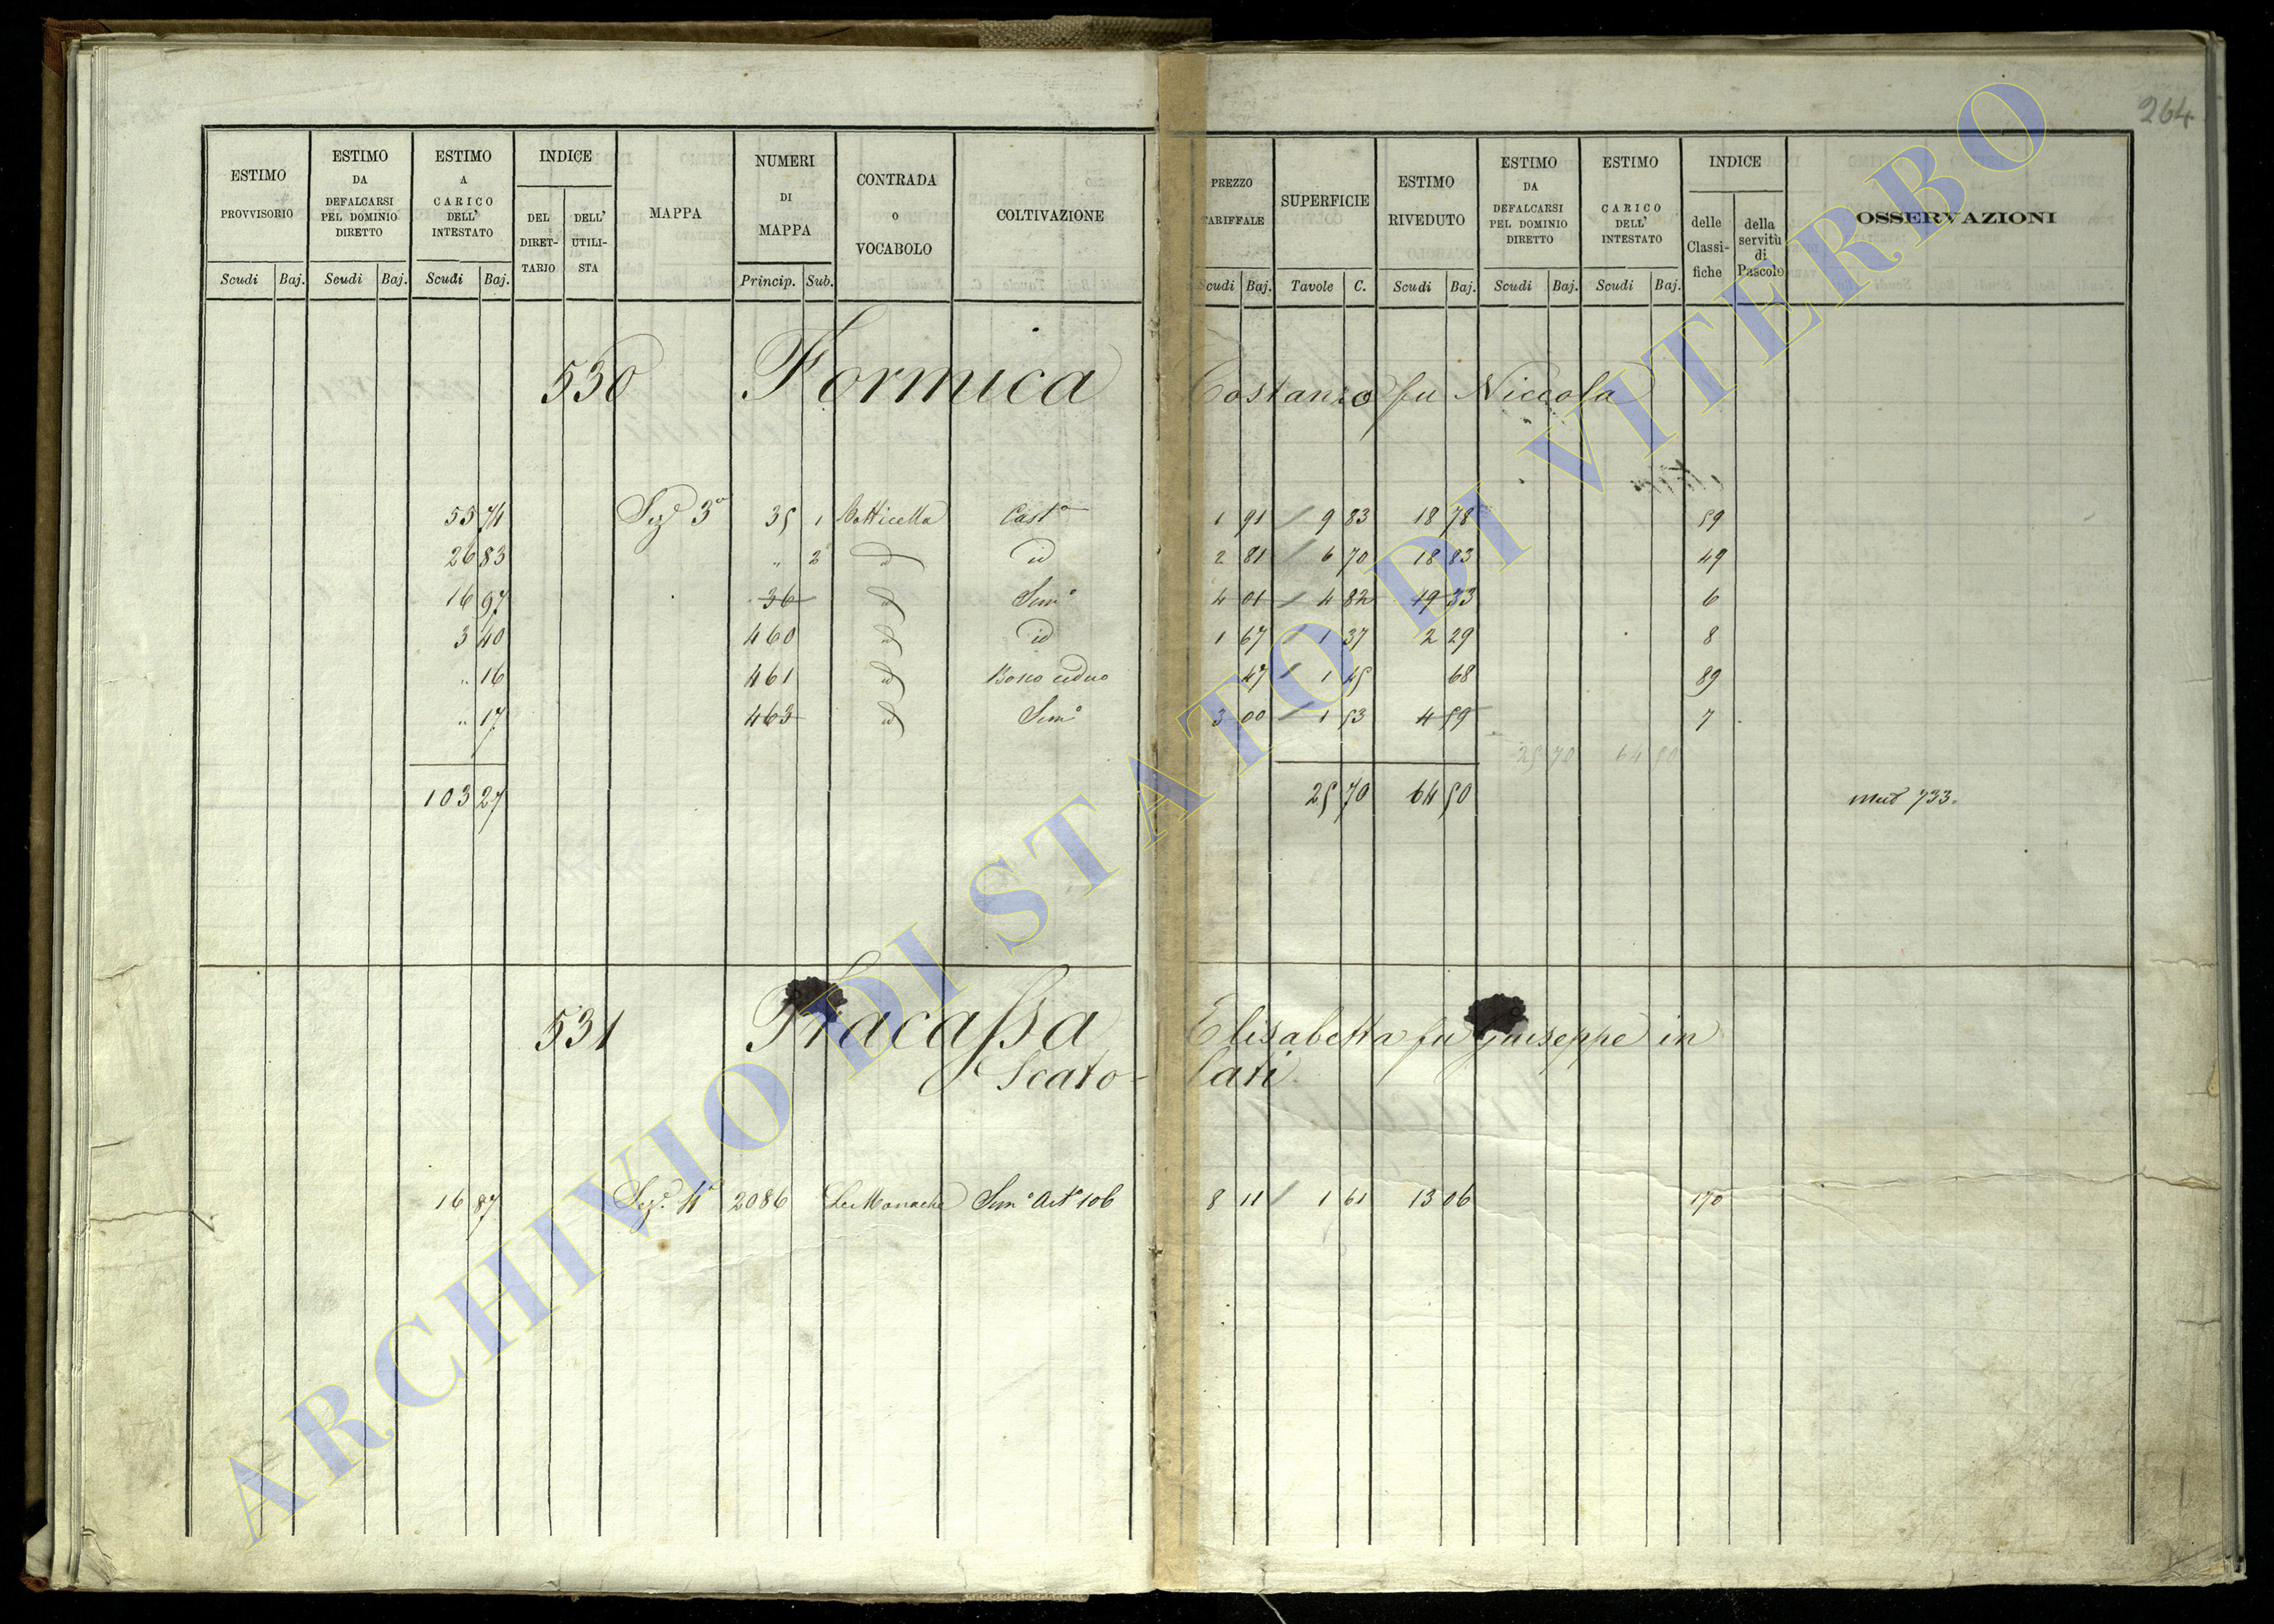 264
ESTIMO PROVVISORIO Scudi Baj.
ESTIMO DA DEFALCARSI PEL DOMINIO DIRETTO Scudi Baj.
ESTIMO A CARICO DELL' INTESTATO Scudi Baj.
INDICE DEL DIRET-TARIO DELL' UTILI-STA
MAPPA
NUMERI DI MAPPA Princip. Sub.
CONTRADA O VOCABOLO
COLTIVAZIONE
PREZZO TARIFFALE Scudi Baj.
SUPERFICIE Tavole C.
ESTIMO RIVEDUTO Scudi Baj.
ESTIMO DA DEFALCARSI PEL DOMINIO DIRETTO Scudi Baj.
ESTIMO A CARICO DELL' INTESTATO Scudi Baj.
INDICE delle Classi-fiche della servitù di Pascolo
OSSERVAZIONI
530 Formica Costanzo fu Niccola
55 74 Sez.e 3a 35 1 Botticella Cast.o 1 91 / 9 83 18 78 59
26 83 " 2 id id 2 81 / 6 70 18 83 49
16 97 36 id Sem.o 4 01 / 4 82 19 33 6
3 40 460 id id 1 67 / 1 37 2 29 8
" 16 461 id Bosco ceduo 47 / 1 45 68 89
" 17 463 id Sem.o 3 00 / 1 53 4 59 7
25 70 64 50
103 27 25 70 64 50 Mut 733.
531 Fracassa Elisabetta fu Giuseppe in
Scato- lati
16 87 Sez.e 4a 2086 Le Monache Sem.o Art.o 106 8 11 / 1 61 13 06 170
ARCHIVIO DI STATO DI VITERBO